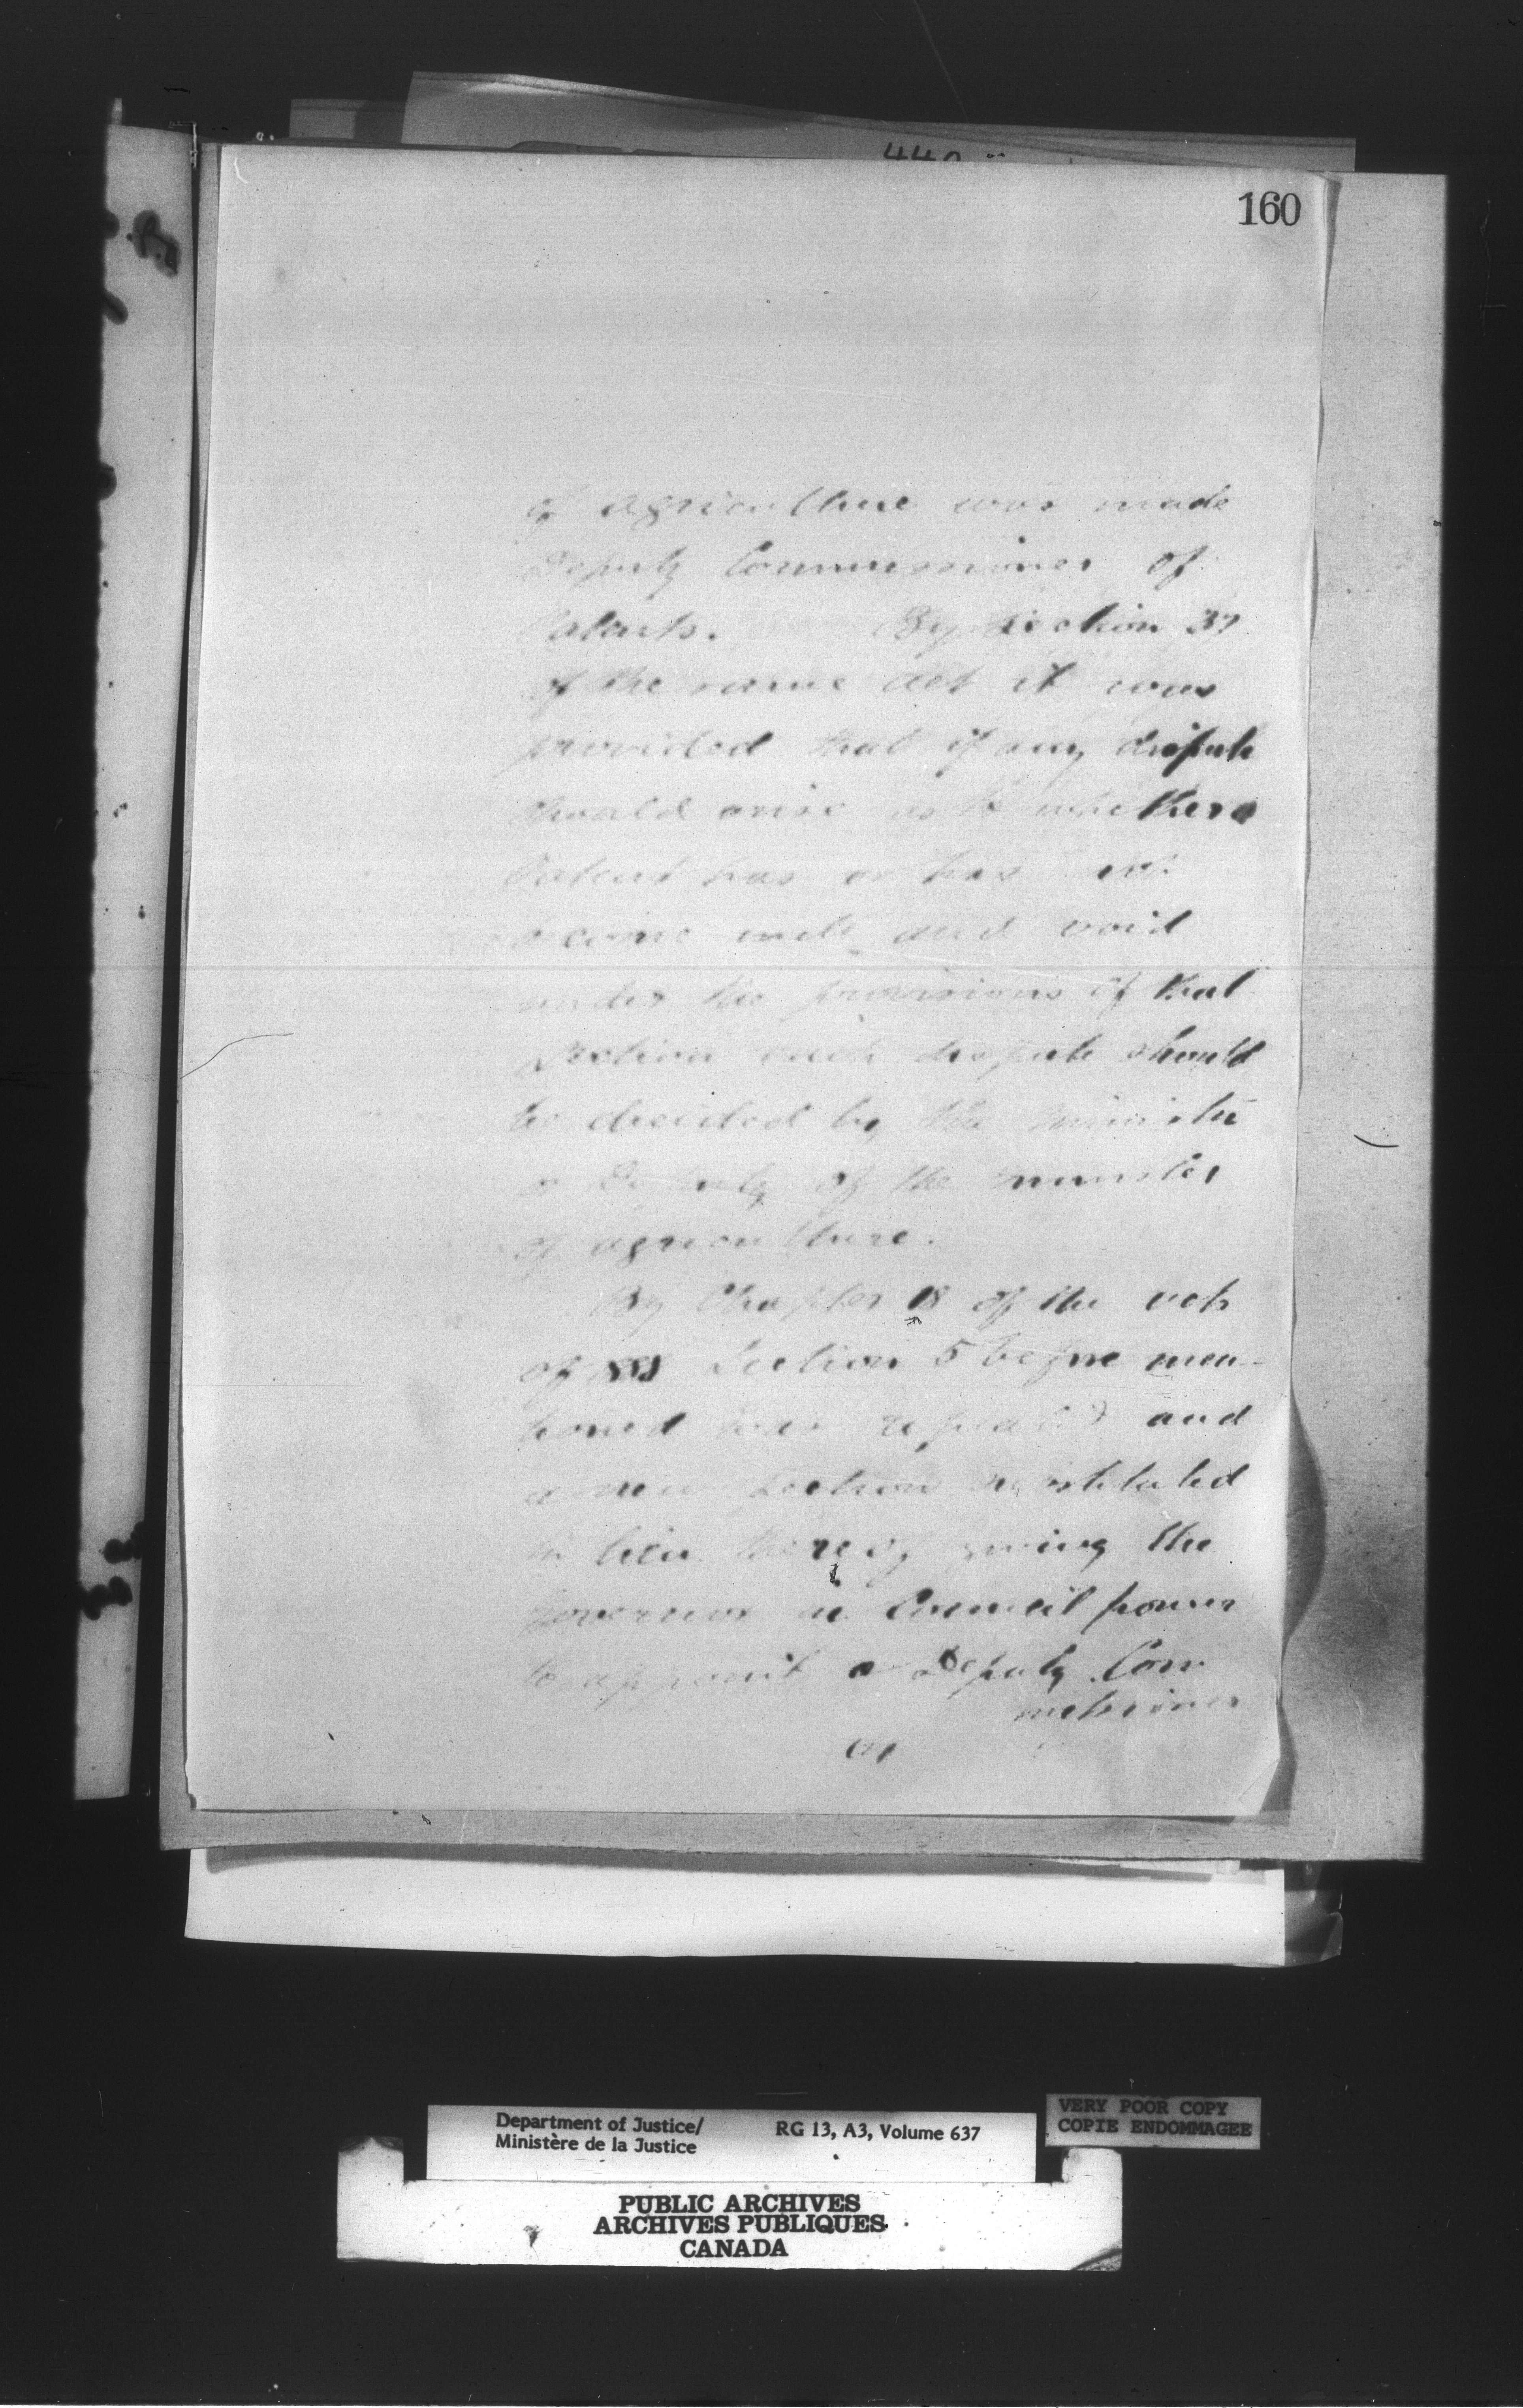 440
160
of agriculture was made
Deputy Commissioner of
Patents. By Section 37
of the same act it was
provided that if any dispute
should arise as to whether a
Patent has or has not
become null and void
under the provisions of that
Section such dispute should
be decided by the minister
or Deputy of the minister
of agriculture.
By Chapter 18 of the acts
of 1888 Section 5 before men-
tioned was repealed and
a new Section substituted
in lieu thereof giving the
Governor in Council power
to appoint a Deputy Com
missioner
of
Department of Justice/
Ministère de la Justice
RG 13, A3, Volume 637
VERY POOR COPY
COPIE ENDOMMAGEE
PUBLIC ARCHIVES
ARCHIVES PUBLIQUES
CANADA